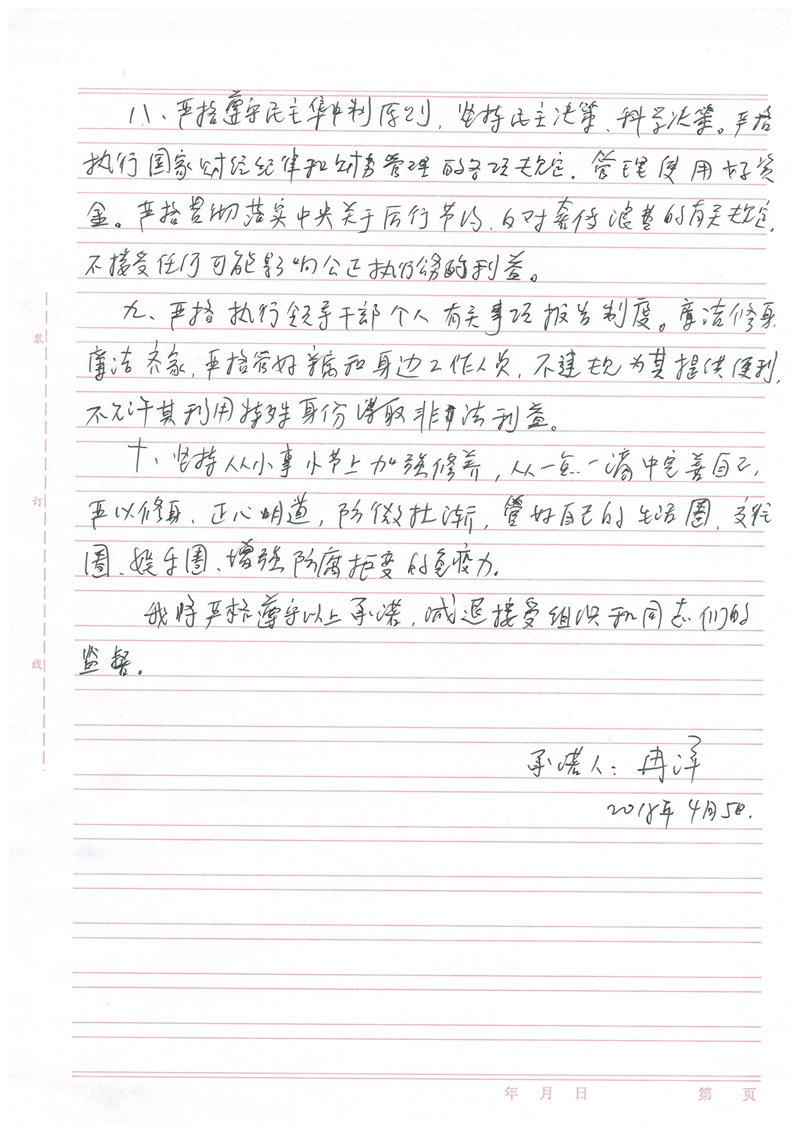 八、严格遵守民主集中制原则，坚持民主决策、科学决策。严格
执行国家财经纪律和财务管理的各项规定，管理使用好资
金。严格贯彻落实中央关于厉行节约、反对奢侈浪费的有关规定，
不接受任何可能影响公正执行公务的利益。
九、严格执行领导干部个人有关事项报告制度。廉洁修身，
廉洁齐家，严格管好亲属和身边工作人员，不违规为其提供便利，
不允许其利用特殊身份谋取非法利益。
十、坚持从小事小节上加强修养，从一点一滴中完善自己，
严以修身、正心明道，防微杜渐，管好自己的生活圈、交往
圈、娱乐圈、增强防腐拒变的免疫力。
我将严格遵守以上承诺，诚恳接受组织和同志们的
监督。
承诺人：冉洋
2018年4月5日.
装
订
线
年 月 日 第 页